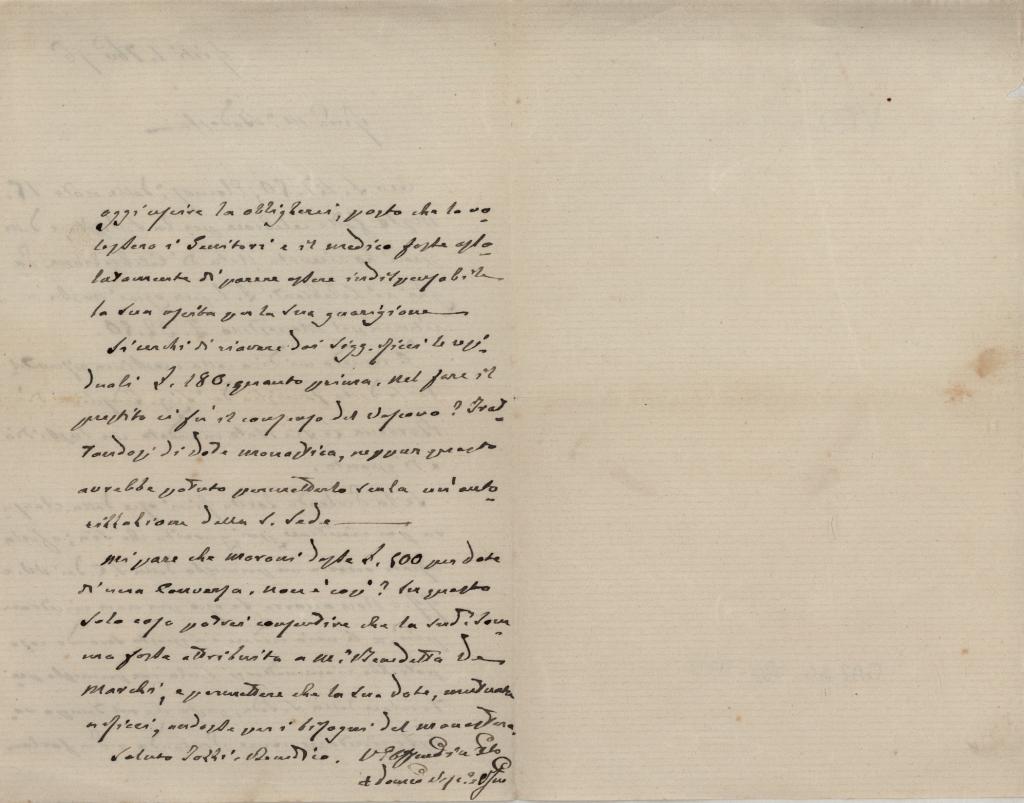 oggi uscire la obbligherei, posto che lo vo-
lessero i Genitori e il medico fosse asso-
lutamente di parere essere indispensabile
la sua uscita per la sua guarigione
Si cerchi di riavere dai Sigg. Ricci le resi-
duali £. 180. quanto prima. Nel fare il
prestito ci fu il consenso del Vescovo? Trat-
tandosi di dote monastica, neppur questo
avrebbe potuto permetterlo senza un'auto-
rizzazione della S. Sede
Mi pare che Moroni desse £. 500 per dote
di una Conversa. Non è così? In questo
solo caso potrei consentire che la sudᵃ Som-
ma fosse attribuita a Mᵃ Benedetta De
Marchi, e permettere che la sua dote,
Ricci, andasse per i bisogni del monastero.
Saluto Tozzi. Benedico.